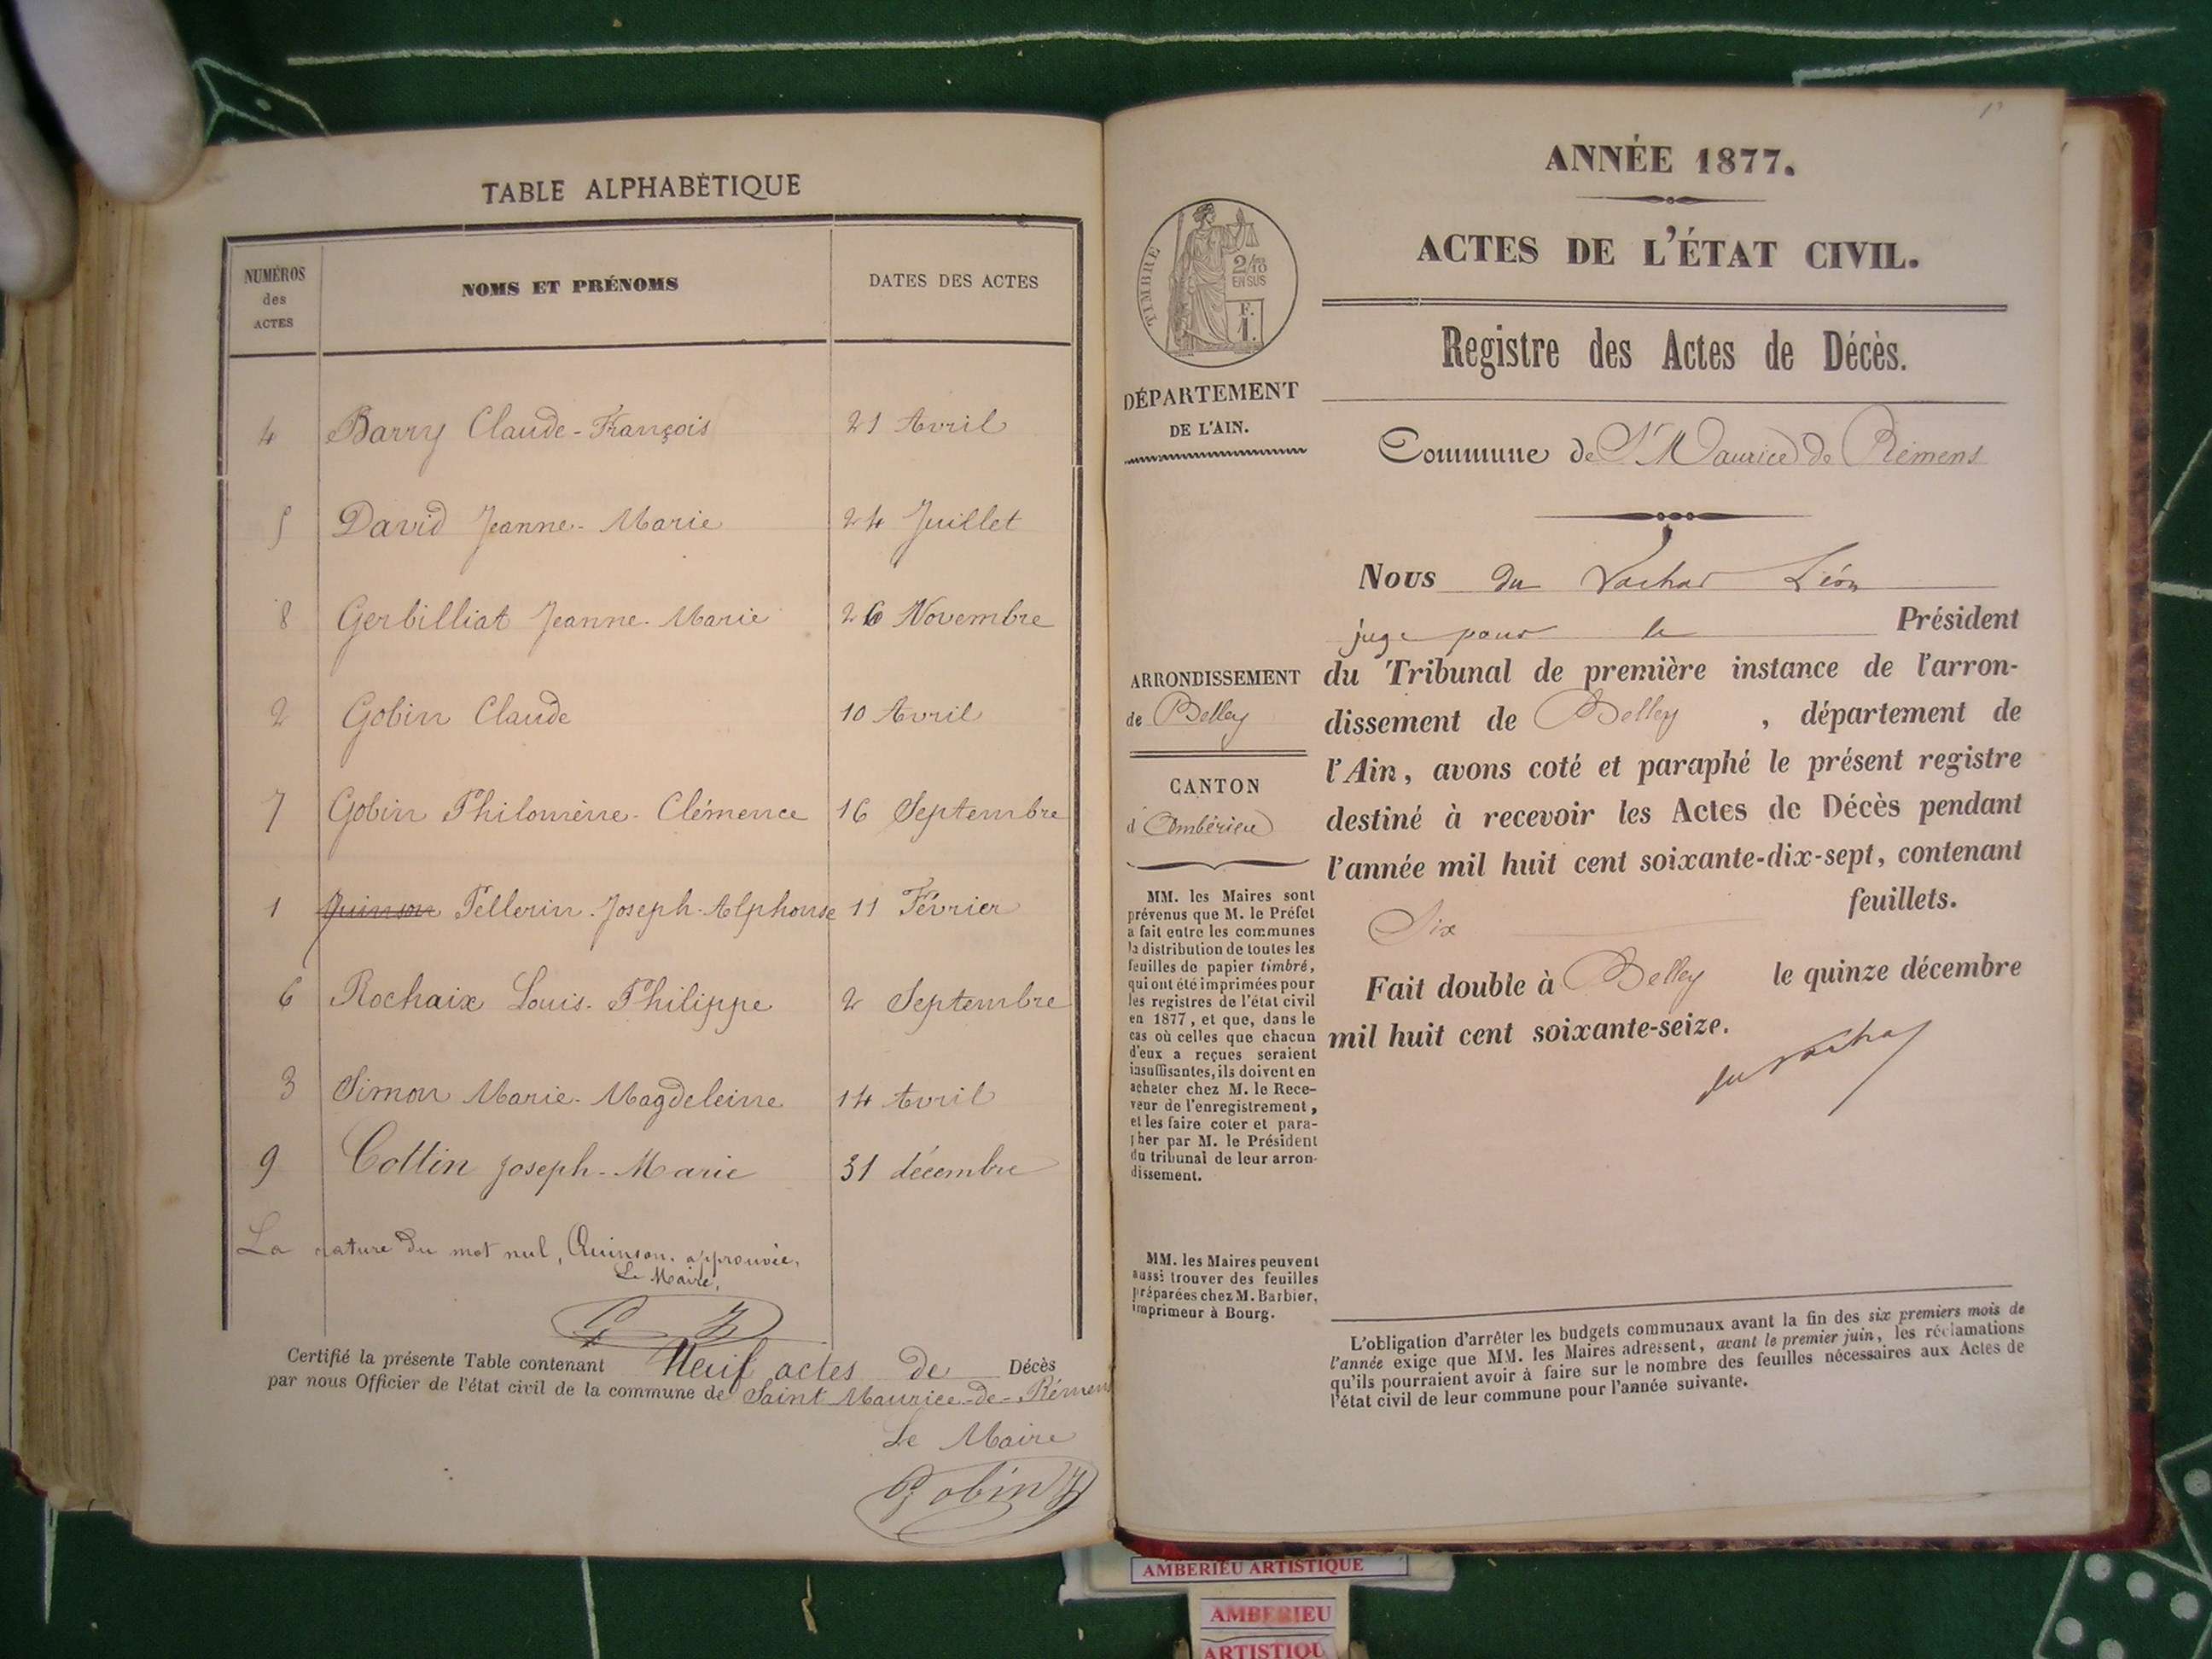 TABLE ALPHABÉTIQUE
NUMÉROS
des
ACTES
NOMS ET PRÉNOMS
DATES DES ACTES
4 Barry Claude-François 21 Avril
5 David Jeanne-Marie 24 Juillet
8 Gerbilliat Jeanne-Marie 26 Novembre
2 Gobin Claude 10 Avril
7 Gobin Philomène-Clémence 16 Septembre
1 Quinson Pellerin-Joseph-Alphonse 11 Février
6 Rochaix Louis-Philippe 2 Septembre
3 Simon Marie-Magdeleine 14 Avril
9 Cottin Joseph-Marie 31 décembre
La rature du mot nul, Quinson, approuvée,
Le Maire,
Certifié la présente Table contenant Neuf actes de Décès
par nous Officier de l'état civil de la commune de Saint-Maurice-de-Rémens
Le Maire
Gobin
ANNÉE 1877.
ACTES DE L'ÉTAT CIVIL.
TIMBRE
2/10
EN SUS
F.
1.
Registre des Actes de Décès.
DÉPARTEMENT
DE L'AIN.
Commune de St Maurice de Rémens
Nous du Vachat Léon
juge pour le Président
du Tribunal de première instance de l'arron-
dissement de Belley, département de
l'Ain, avons coté et paraphé le présent registre
destiné à recevoir les Actes de Décès pendant
l'année mil huit cent soixante-dix-sept, contenant
Six feuillets.
Fait double à Belley le quinze décembre
mil huit cent soixante-seize.
du Vachat
ARRONDISSEMENT
de Belley
CANTON
d'Ambérieu
MM. les Maires sont
prévenus que M. le Préfet
a fait entre les communes
la distribution de toutes les
feuilles de papier timbré,
qui ont été imprimées pour
les registres de l'état civil
en 1877, et que, dans le
cas où celles que chacun
d'eux a reçues seraient
insuffisantes, ils doivent en
acheter chez M. le Rece-
veur de l'enregistrement,
et les faire coter et para-
pher par M. le Président
du tribunal de leur arron-
dissement.
MM. les Maires peuvent
aussi trouver des feuilles
préparées chez M. Barbier,
imprimeur à Bourg.
L'obligation d'arrêter les budgets communaux avant la fin des six premiers mois de
l'année exige que MM. les Maires adressent, avant le premier juin, les réclamations
qu'ils pourraient avoir à faire sur le nombre des feuilles nécessaires aux Actes de
l'état civil de leur commune pour l'année suivante.
AMBERIEU ARTISTIQUE
AMBERIEU
ARTISTIQU